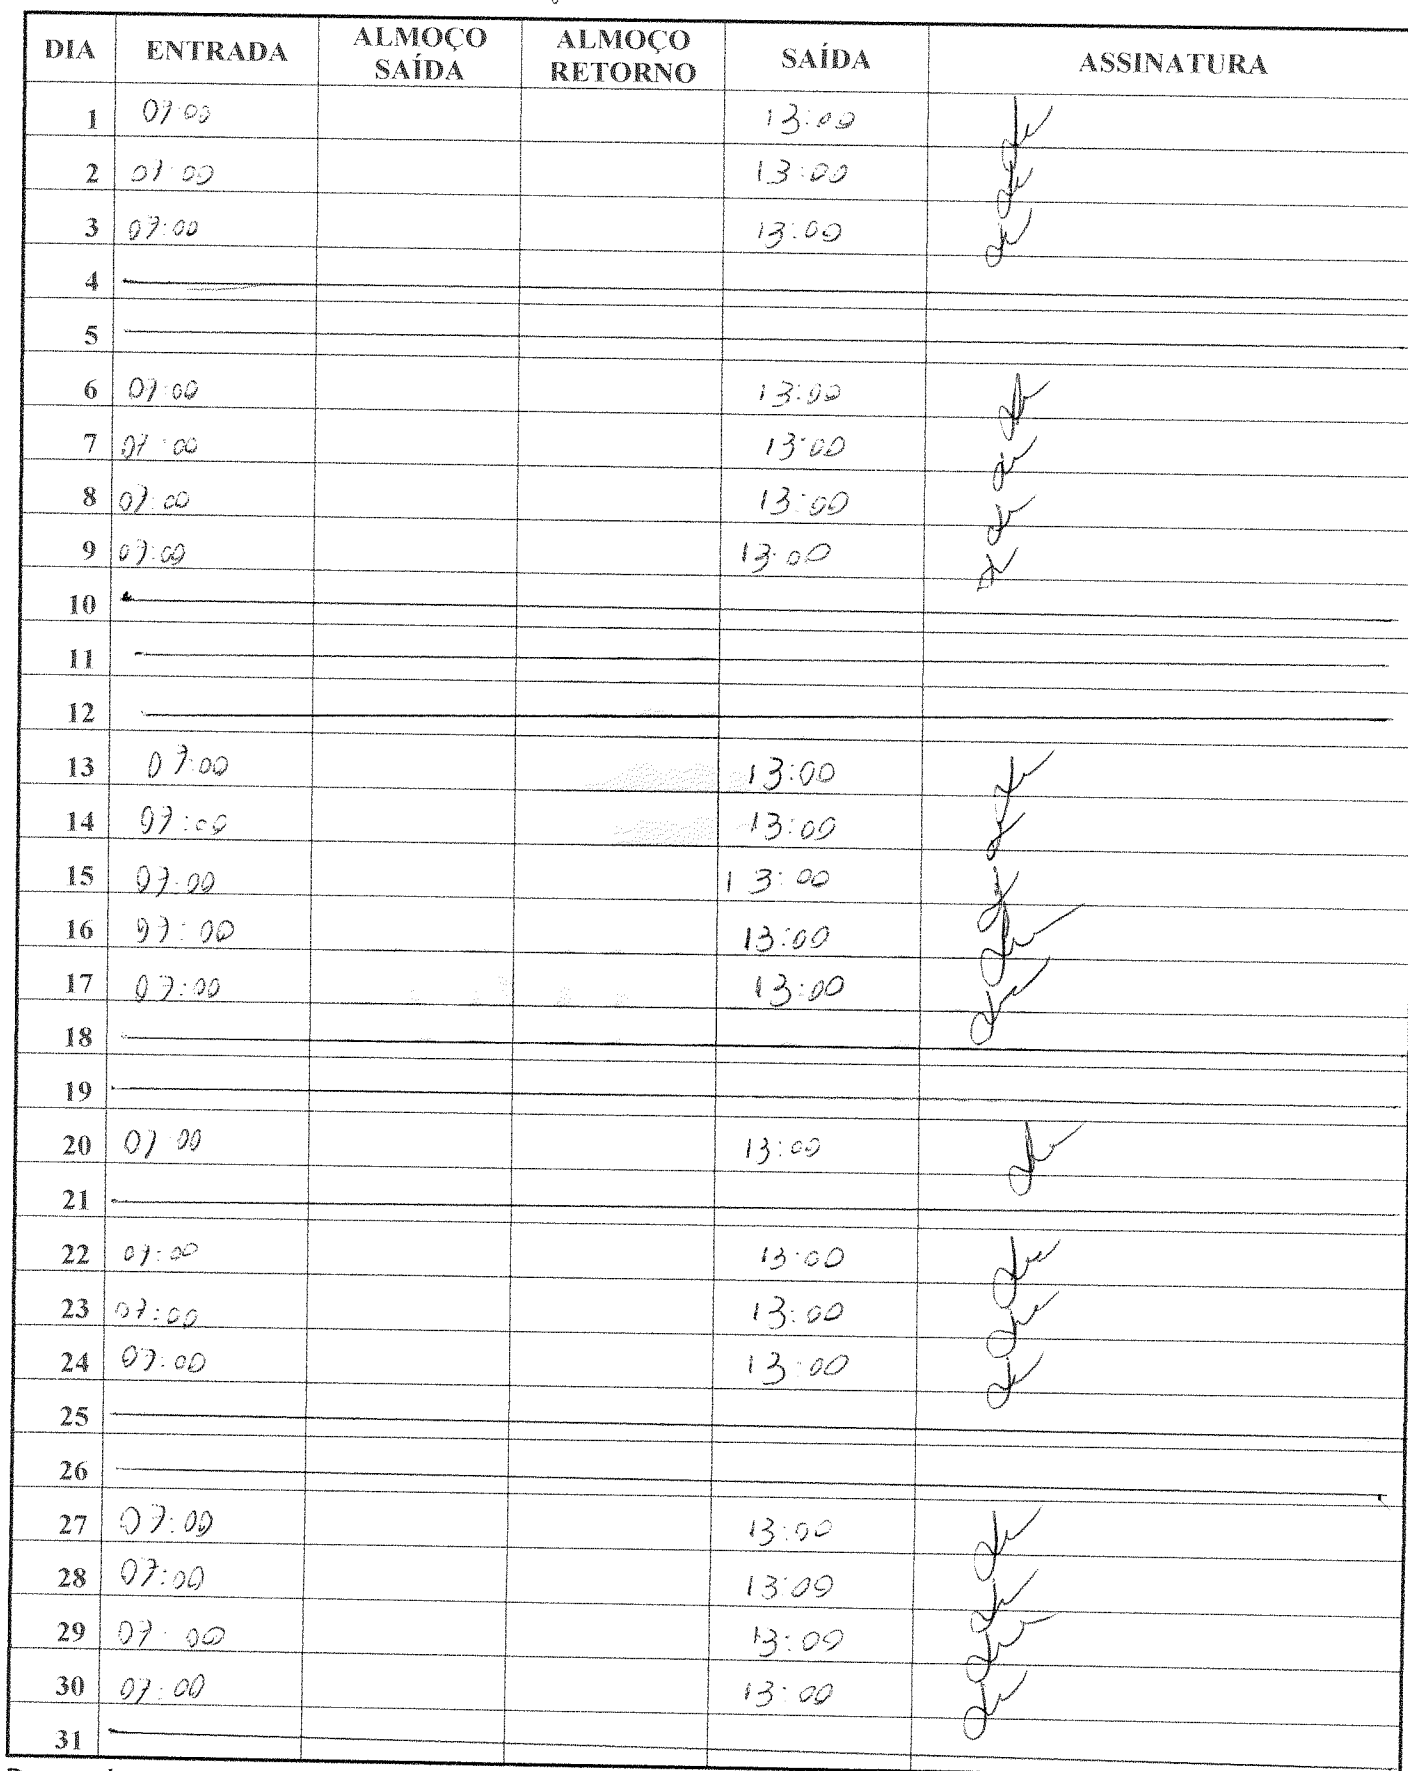 DIA ENTRADA ALMOÇO SAÍDA ALMOÇO RETORNO SAÍDA ASSINATURA
1 07:00 13:00
2 07:00 13:00
3 07:00 13:00
4
5
6 07:00 13:00
7 07:00 13:00
8 07:00 13:00
9 07:00 13:00
10
11
12
13 07:00 13:00
14 07:00 13:00
15 07:00 13:00
16 07:00 13:00
17 07:00 13:00
18
19
20 07:00 13:00
21
22 07:00 13:00
23 07:00 13:00
24 07:00 13:00
25
26
27 07:00 13:00
28 07:00 13:00
29 07:00 13:00
30 07:00 13:00
31